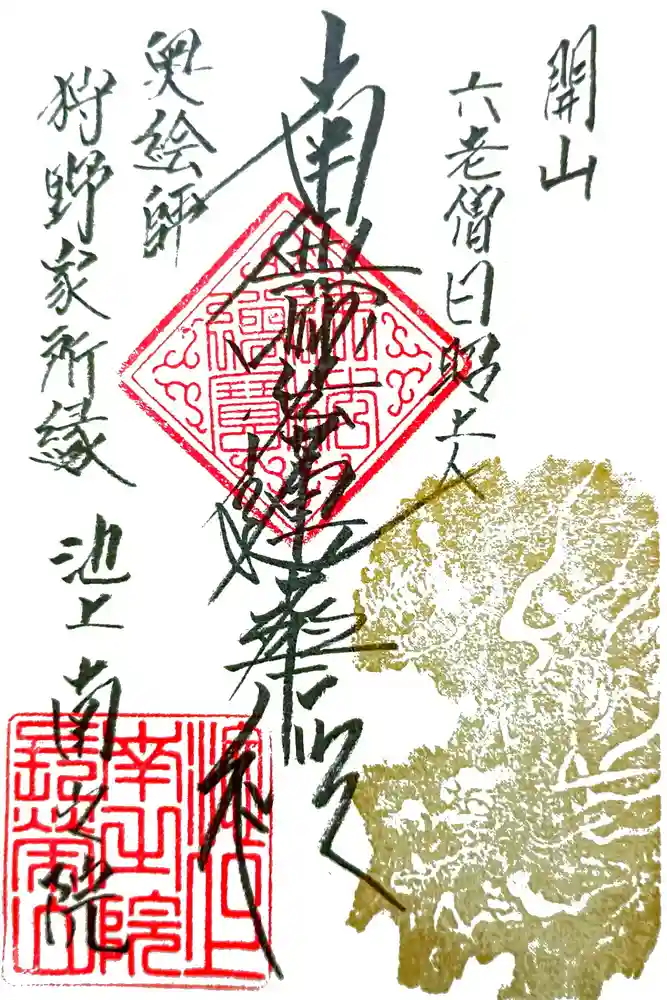 開山
六老僧日昭上人
南無妙法蓮華経
奥絵師
狩野家所縁
池上 南之院
池上
南之院